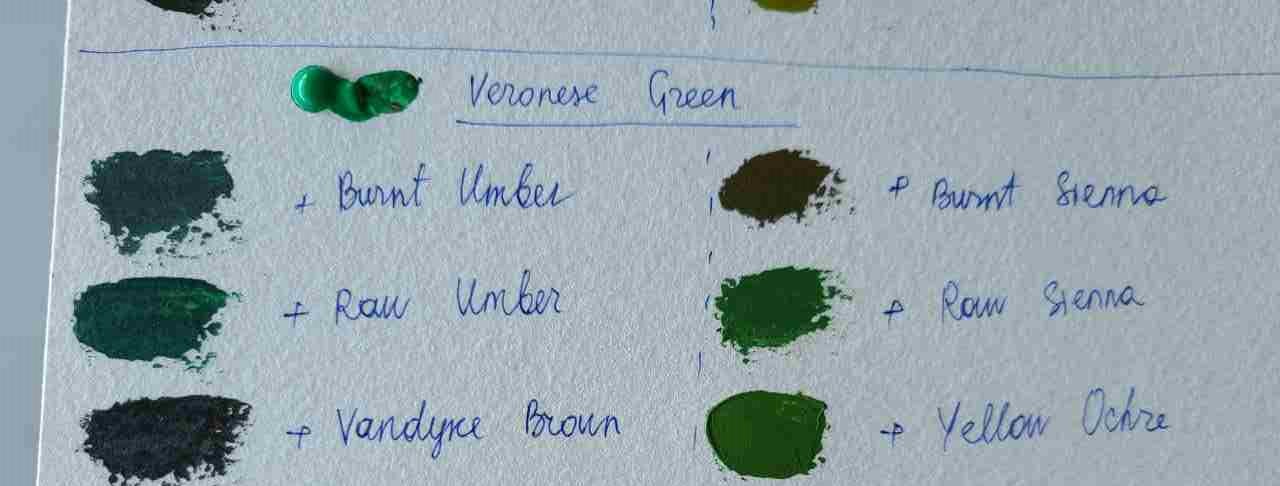 Veronese Green
+ Burnt Umber
+ Burnt Sienna
+ Raw Umber
+ Raw Sienna
+ Vandyke Broun
+ Yellow Ochre